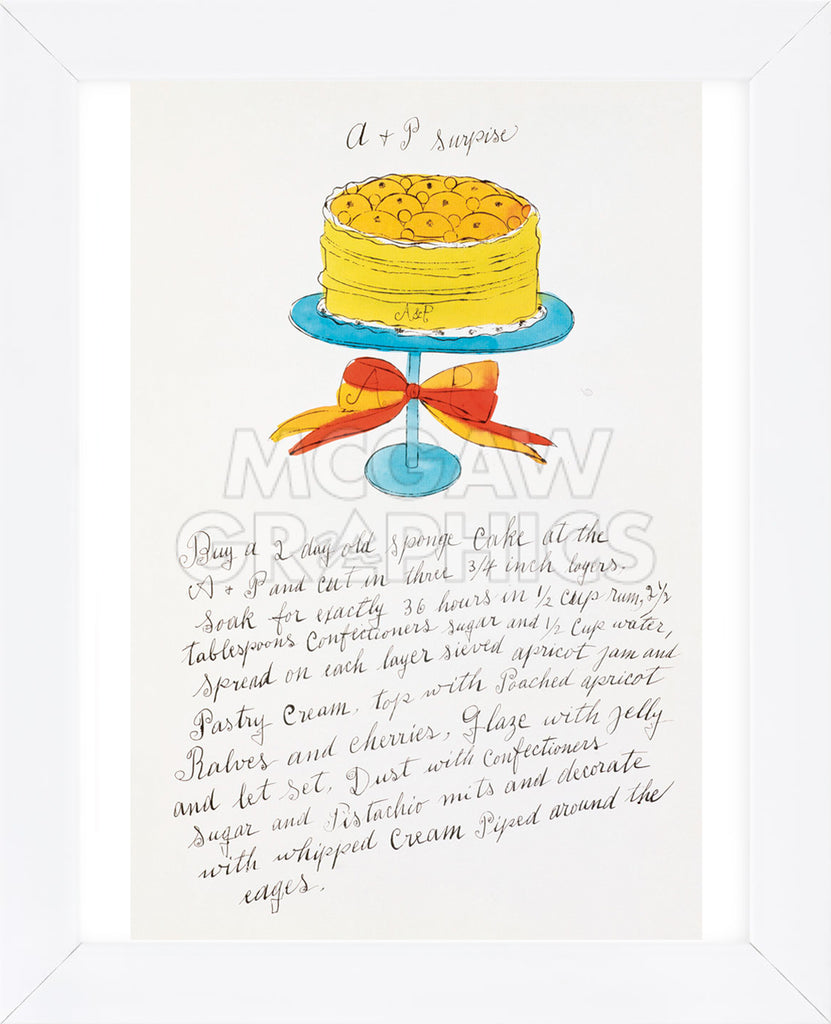 A + P surpise
A&P
A P
MCGAW
GRAPHICS
Buy a 2 day old sponge cake at the
A + P and cut in three 3/4 inch layers.
soak for exactly 36 hours in 1/2 cup rum, 2 1/2
tablespoons confectioners sugar and 1/2 cup water,
spread on each layer sieved apricot jam and
Pastry Cream, top with Poached apricot
Ralves and cherries, Glaze with jelly
and let set, Dust with confectioners
sugar and Pistachio mits and decorate
with whipped Cream Piped around the
eages.